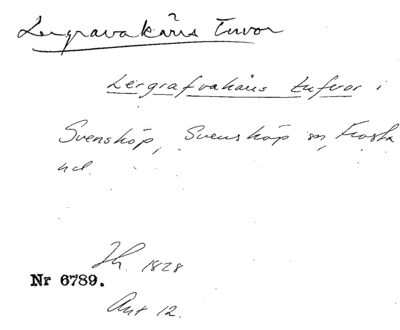 Lergravakärs Tuvor
Lergrafvakärrs tufvor i
Svensköp, Svensköp sn, Frosta
hd.
Lh. 1828
Nr 6789.
Akt 12.